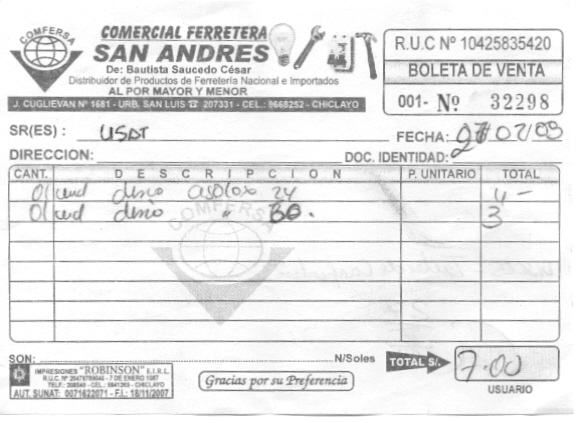 COMFERSA
COMERCIAL FERRETERA
SAN ANDRES
De: Bautista Saucedo César
Distribuidor de Productos de Ferretería Nacional e Importados
AL POR MAYOR Y MENOR
J. CUGLIEVAN Nº 1681 - URB. SAN LUIS ☎ 207331 - CEL.: 9668252 - CHICLAYO
R.U.C Nº 10425835420
BOLETA DE VENTA
001- Nº 32298
SR(ES) : USAT
FECHA: 07/09
DIRECCION: DOC. IDENTIDAD:
CANT. DESCRIPCION P. UNITARIO TOTAL
01 und 24 4 -
01 und " 80. 3
COMFERSA
SON: N/Soles TOTAL S/. 7.00
IMPRESIONES "ROBINSON" E.I.R.L.
AUT. SUNAT: 0071622071 - F.I.: 18/11/2007
Gracias por su Preferencia
USUARIO